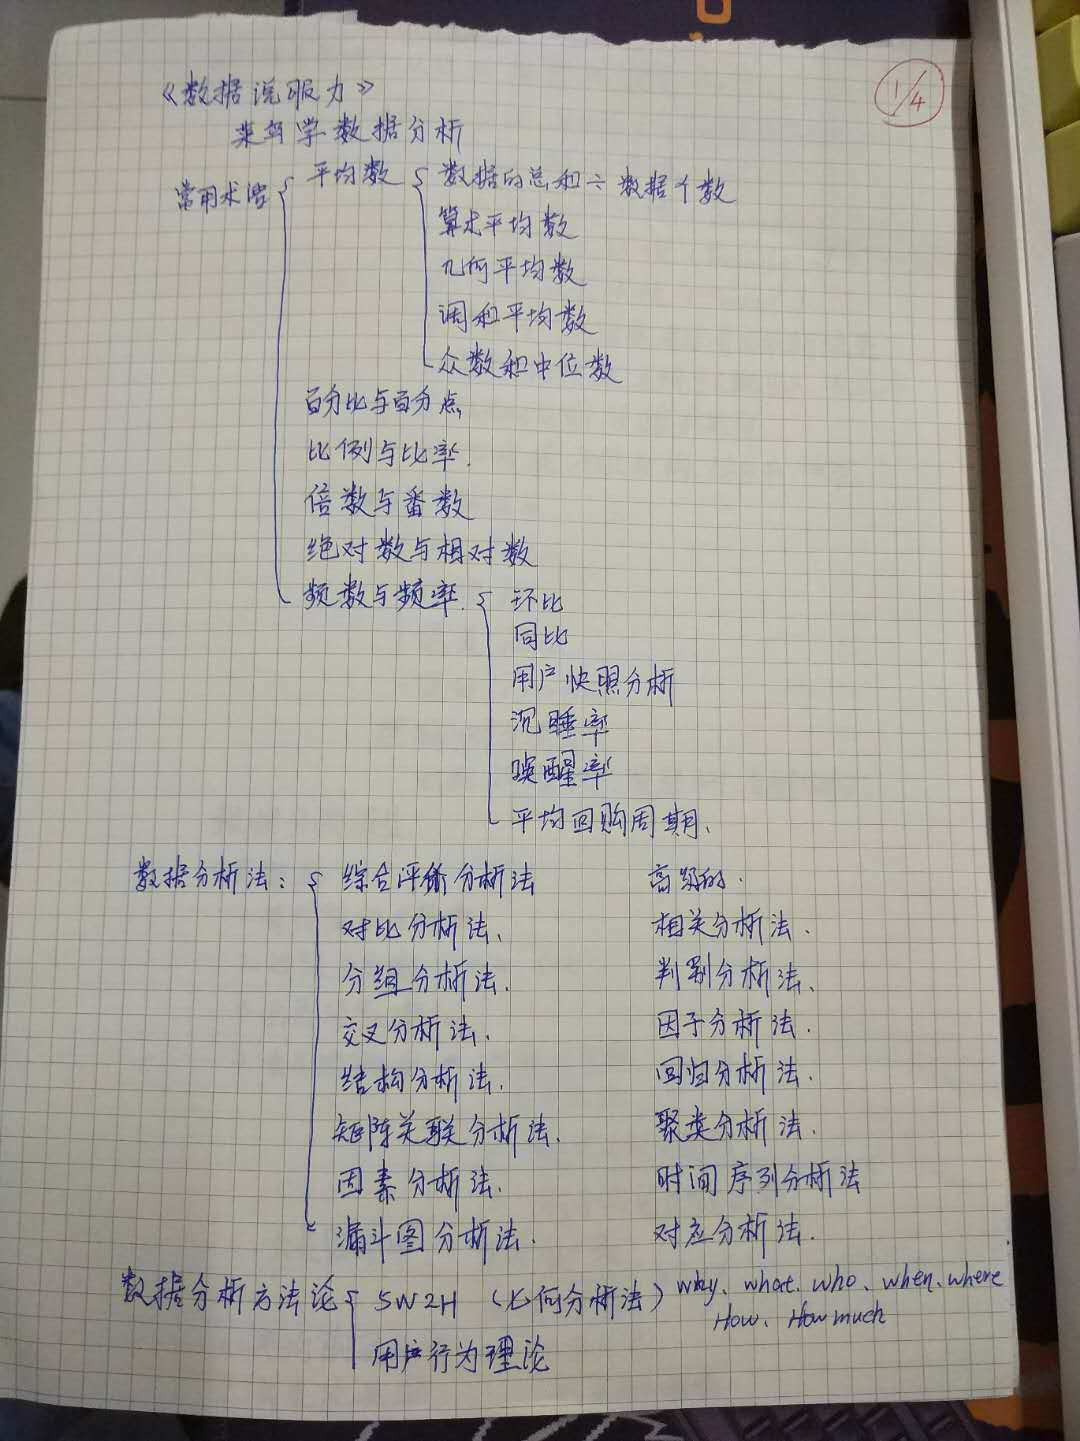 1/4
《数据说服力》
菜鸟学数据分析
常用术语
平均数
数据的总和÷数据个数
算术平均数
几何平均数
调和平均数
众数和中位数
百分比与百分点
比例与比率.
倍数与番数
绝对数与相对数
频数与频率.
环比
同比
用户快照分析
沉睡率
唤醒率
平均回购周期、
数据分析法：
综合评价分析法
对比分析法、
分组分析法.
交叉分析法.
结构分析法.
矩阵关联分析法.
因素分析法.
漏斗图分析法.
高级的.
相关分析法.
判别分析法、
因子分析法.
回归分析法.
聚类分析法.
时间序列分析法
对应分析法.
数据分析方法论
5W2H（七何分析法）why、what、who、when、where
How、How much
用户行为理论